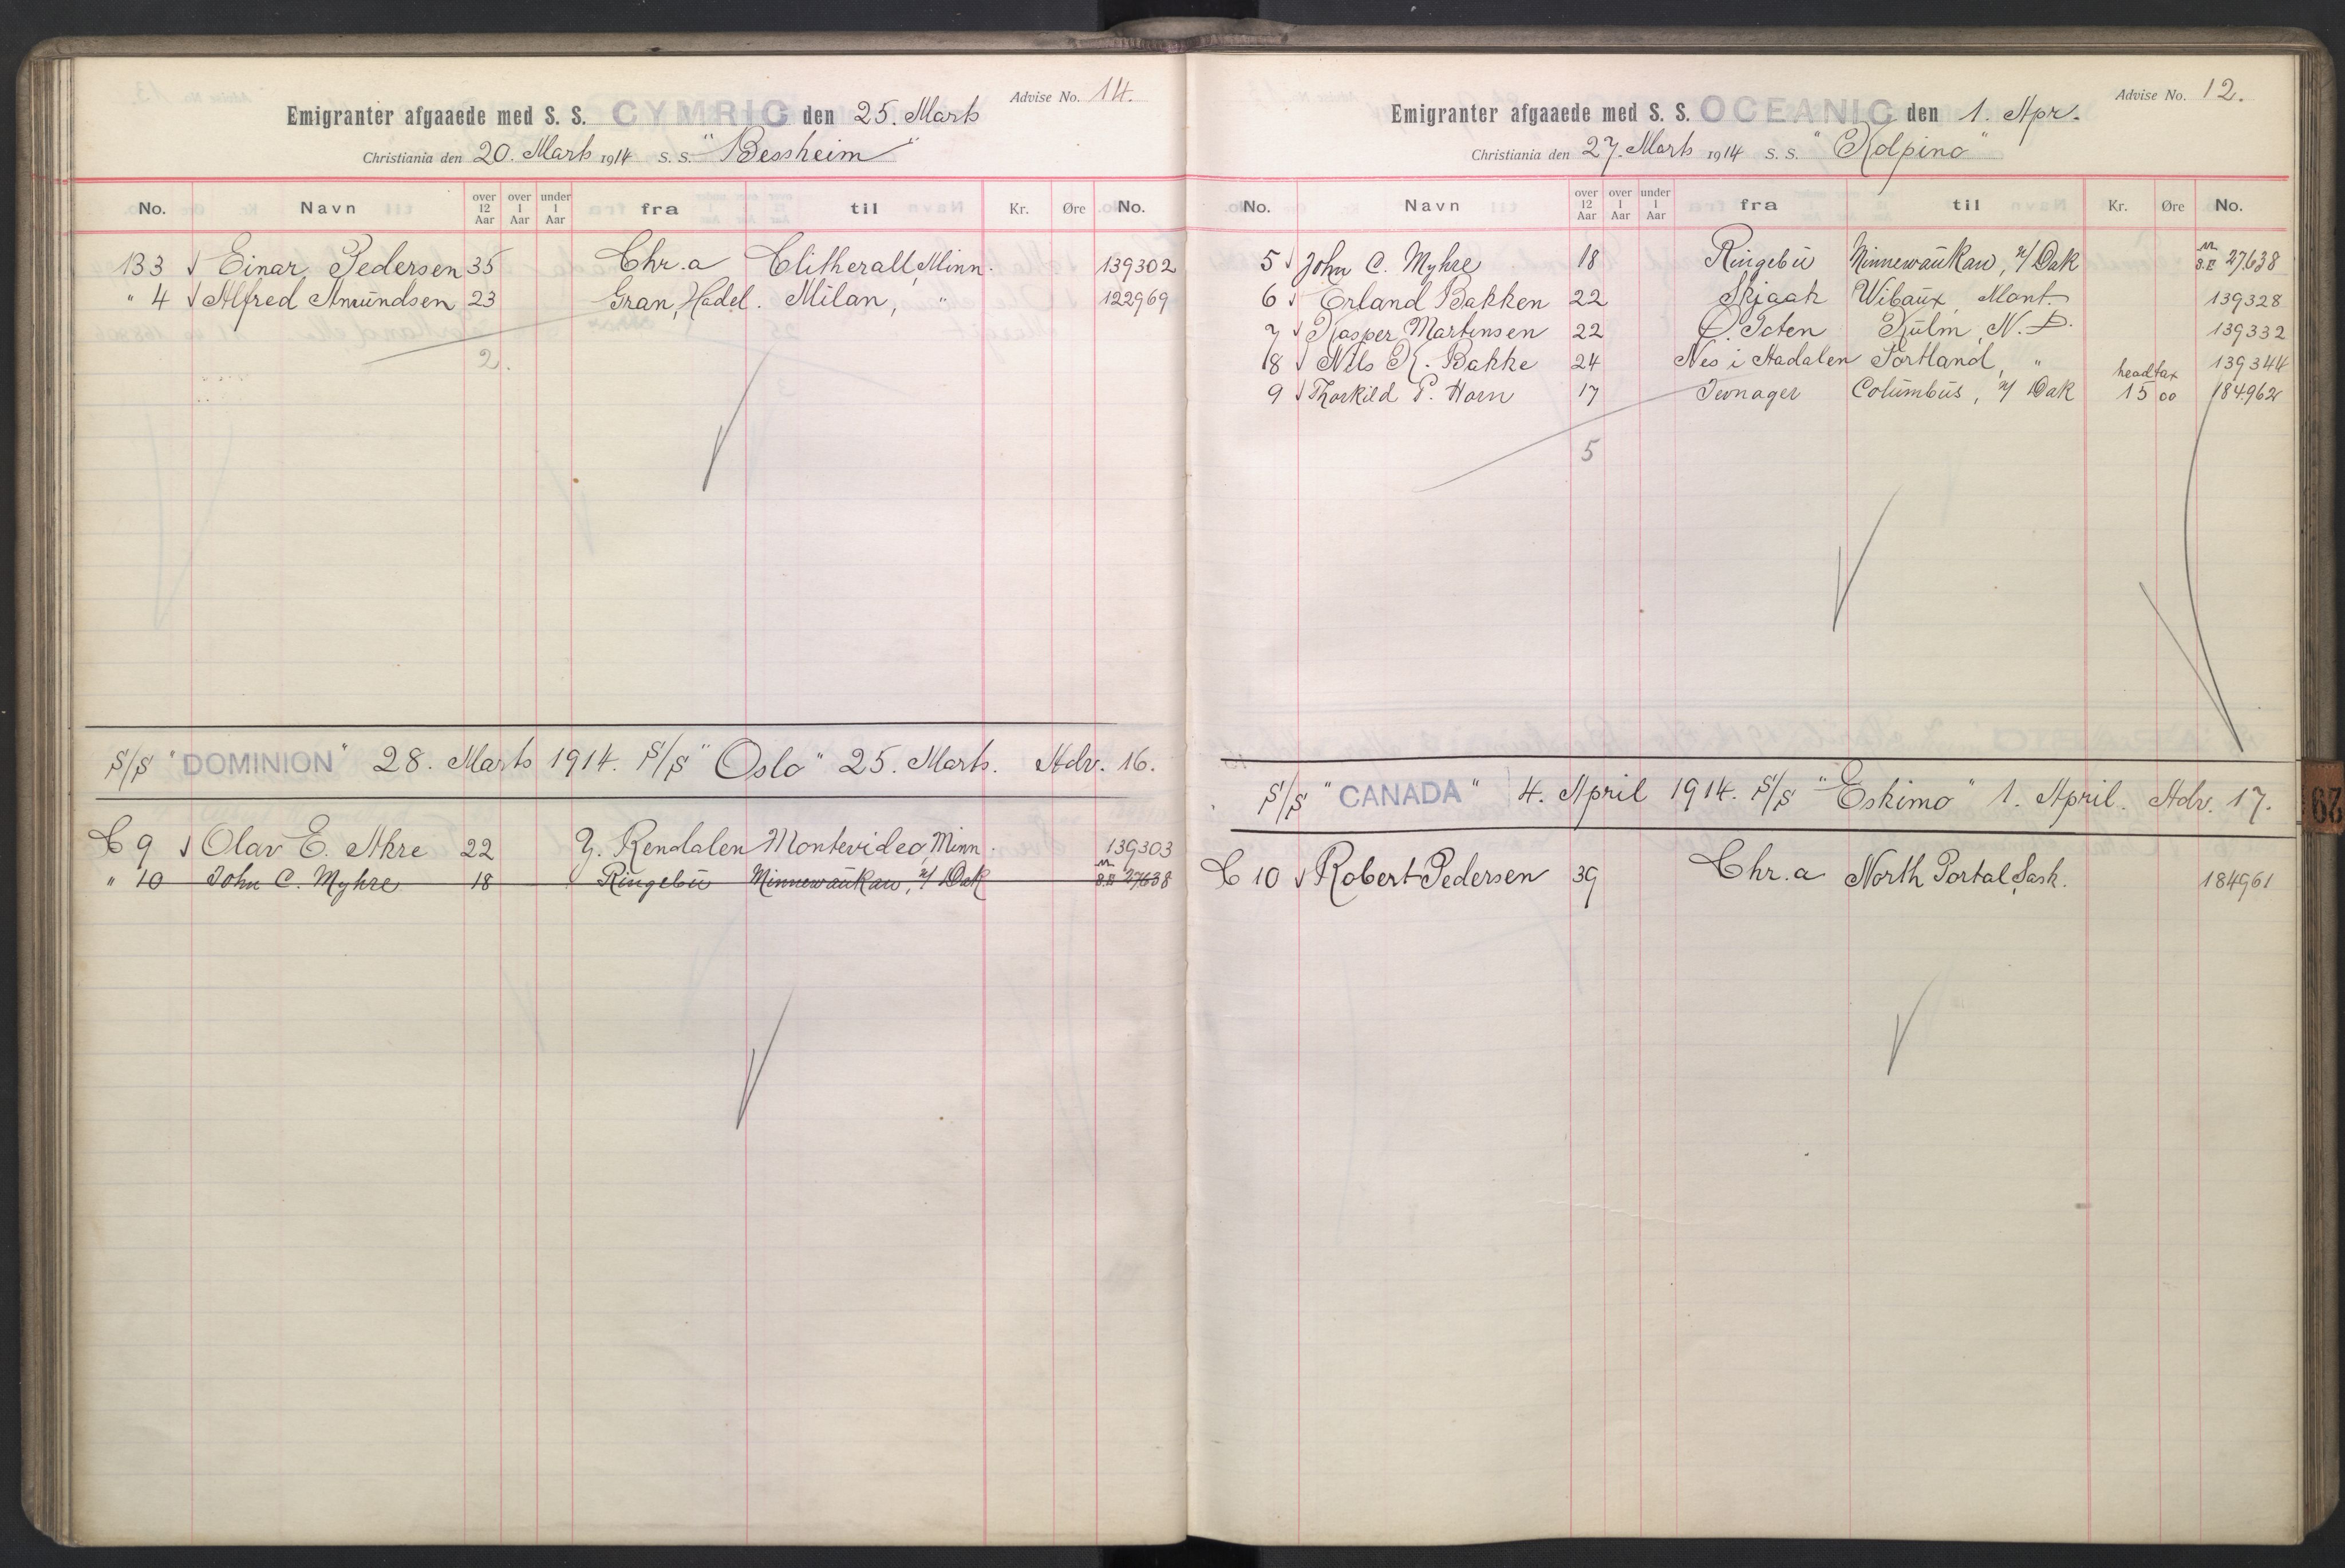 Advise No. 14.
Emigranter afgaaede med S. S. CYMRIC den 25. Marts
Christiania den 20. Marts 1914 S. S. "Bessheim"
No. Navn over 12 Aar over 1 Aar under 1 Aar fra til Kr. Øre No.
133 Einar Pedersen 35 Chr.a Clitherall, Minn. 139302
" 4 Alfred Amundsen 23 Gran, Hadel. Milan, " 122969
2.
S/S "DOMINION" 28. Marts 1914. S/S "Oslo" 25. Marts. Adv. 16.
C 9 Olav E. Akre 22 Y. Rendalen Montevideo, Minn. 139303
" 10 John C. Myhre 18 Ringebu Minnewaukan, N/Dak 27638
Advise No. 12.
Emigranter afgaaede med S. S. OCEANIC den 1. Apr.
Christiania den 27. Marts 1914 S. S. "Kolpino"
No. Navn over 12 Aar over 1 Aar under 1 Aar fra til Kr. Øre No.
5 John C. Myhre 18 Ringebu Minnewaukan, N/Dak 27638
6 Erland Bakken 22 Skjaak Wibaux, Mont. 139328
7 Kasper Martinsen 22 Ø. Toten Kulm, N.D. 139332
8 Nils K. Bakke 24 Nes i Aadalen Portland, " 139344
9 Thorkild P. Horn 17 Jevnager Columbus, N/Dak headtax 15 00 184962
5
S/S "CANADA" 4. April 1914. S/S "Eskimo" 1. April. Adv. 17.
C 10 Robert Pedersen 39 Chr.a North Portal, Sask. 184961
29